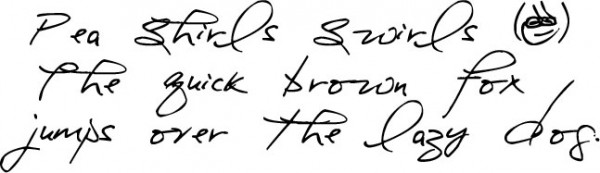 Pea Shirls Swirls
The quick brown fox
jumps over the lazy dog.